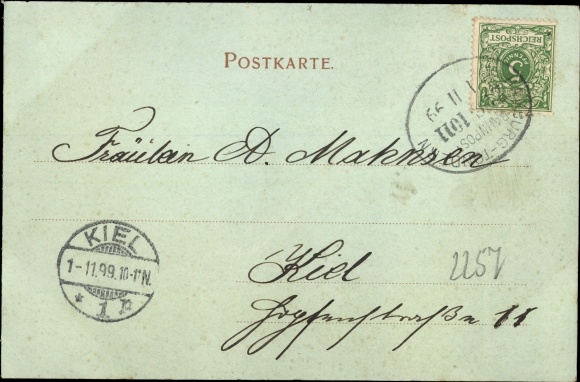 POSTKARTE.
REICHSPOST
5
11 99
1011
BAHNPOST
Fräulein D. Mahnsen
KIEL
1-11.99.10-11N.
* 1 P
Kiel
2257
Hopfenstraße 11